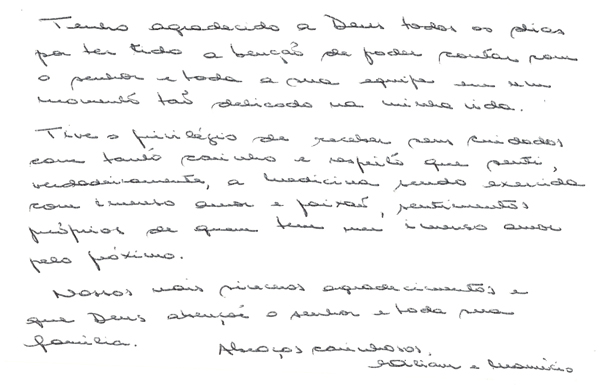 Tenho agradecido a Deus todos os dias
por ter tido a benção de poder contar com
o senhor e toda a sua equipe em um
momento tão delicado na minha vida.
Tive o privilégio de receber seus cuidados
com tanto carinho e respeito que senti,
verdadeiramente, a medicina sendo exercida
com imenso amor e paixão, sentimentos
próprios de quem tem um imenso amor
pelo próximo.
Nossos mais sinceros agradecimentos e
que Deus abençoe o senhor e toda sua
família.
Abraços carinhosos,
e Maurício